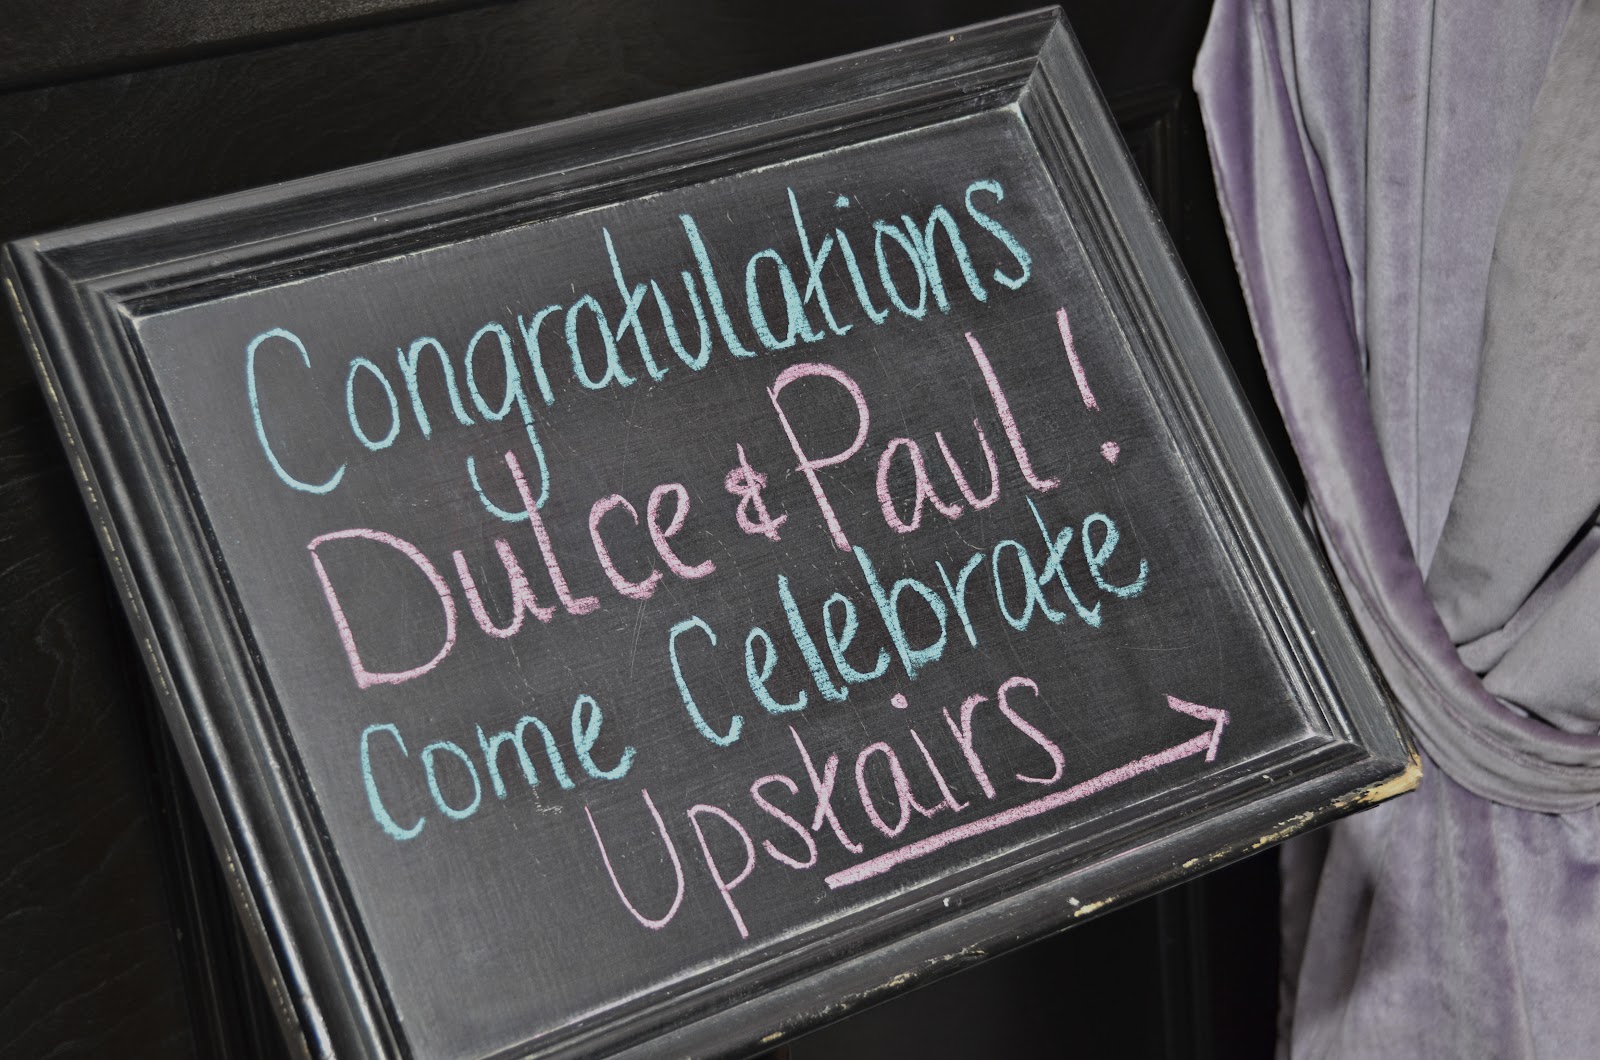 Congratulations
Dulce & Paul!
Come Celebrate
Upstairs